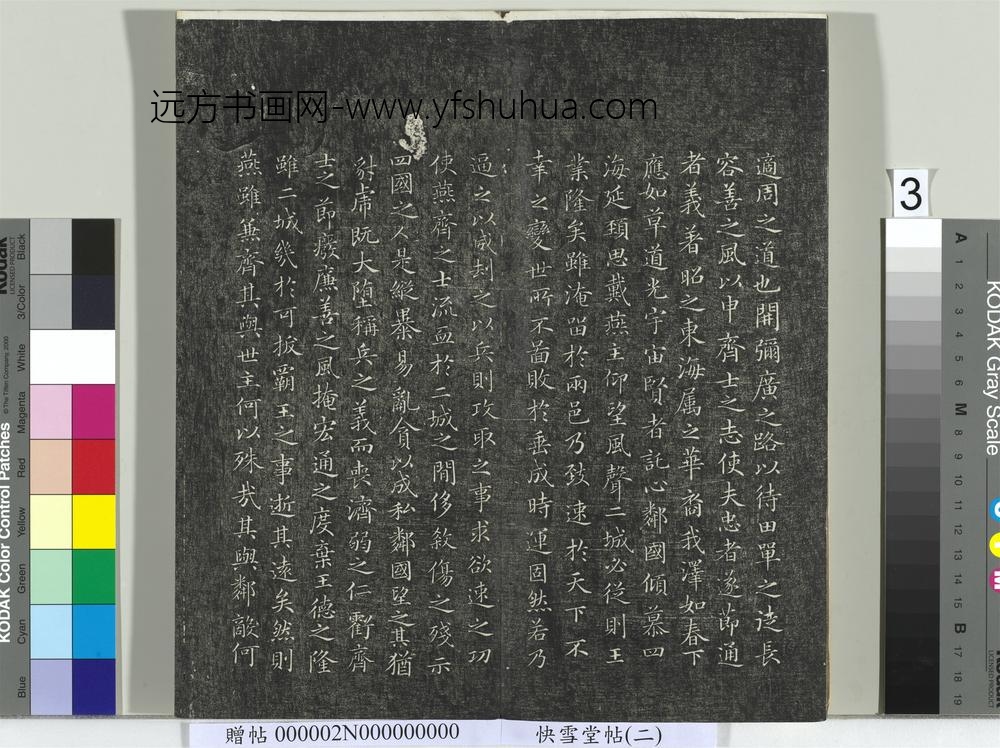 远方书画网-www.yfshuhua.com
適周之道也開彌廣之路以待田單之徒長
容善之風以申齊士之志使夫忠者遂節通
者義著昭之東海属之華裔我澤如春下
應如草道光宇宙賢者託心鄰國傾慕四
海延頸思戴燕主仰望風聲二城必從則王
業隆矣雖淹留於兩邑乃致速於天下不
幸之變世所不啚敗於垂成時運固然若乃
逼之以威刧之以兵則攻取之事求欲速之功
使燕齊之士流血於二城之間侈殺傷之殘示
四國之人是縱暴易亂貪以成私鄰國望之其猶
豺虎既大墮稱兵之義而喪濟弱之仁虧齊
士之節癈廉善之風掩宏通之度棄王德之隆
雖二城幾於可拔霸王之事逝其遠矣然則
燕雖兼齊其與世主何以殊哉其與鄰敵何
贈帖 000002N000000000
快雪堂帖(二)
3
KODAK Color Control Patches
© The Tiffen Company, 2000
Kodak
LICENSED PRODUCT
Blue
Cyan
Green
Yellow
Red
Magenta
White
3/Color
Black
KODAK Gray Scale
A 1 2 3 4 5 6 M 8 9 10 11 12 13 14 15 B 17 18 19